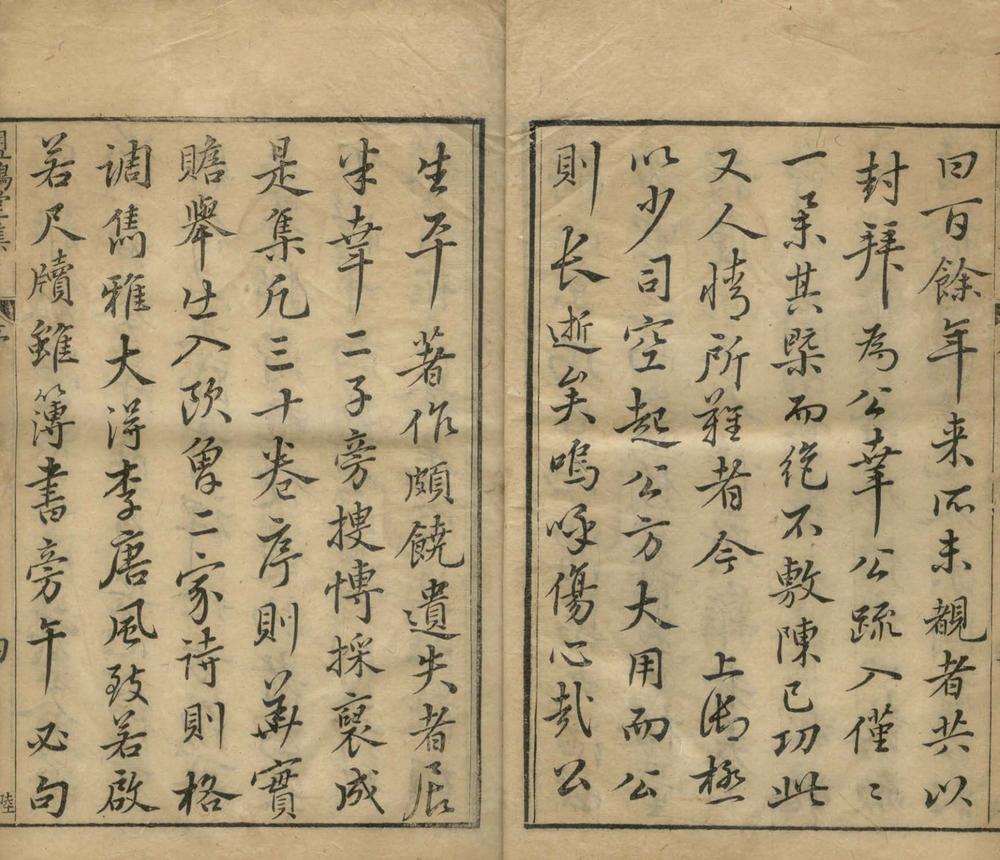 曰百餘年来所未覩者共以
封拜為公幸公疏入僅〻
一举其槩而絶不敷陳已功此
又人情所難者今 上御極
以少司空起公方大用而公
則长逝矣嗚呼傷心哉公
生平著作頗饒遺失者居
半幸二子旁搜愽採裒成
是集凡三十卷序則華實
贍舉出入欧曾二家詩則格
調雋雅大得李唐風致若啟
若尺牘雖簿書旁午必句
堂集
陸